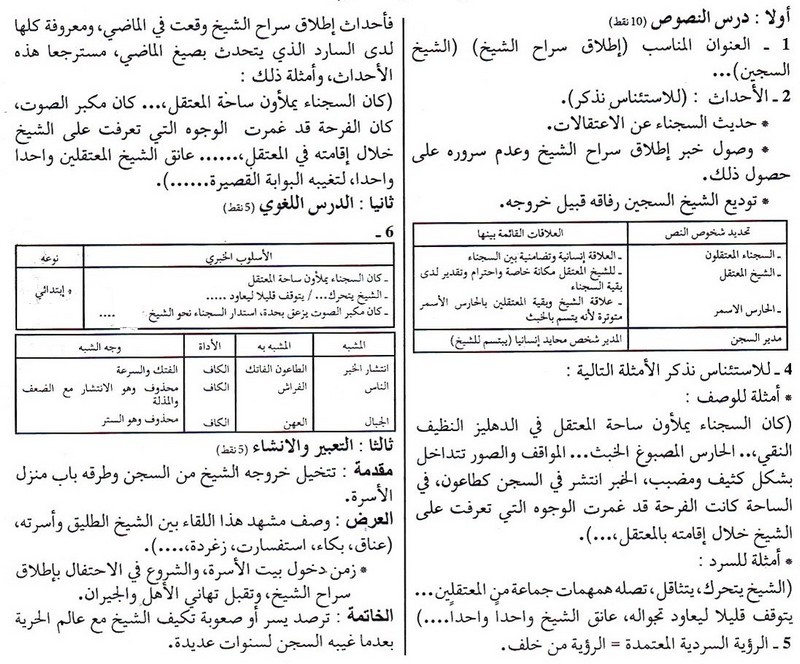 أولا : درس النصوص (10 نقط)
1 ـ العنوان المناسب (إطلاق سراح الشيخ) (الشيخ
السجين)...
2 ـ الأحداث : (للاستئناس نذكر).
* حديث السجناء عن الاعتقالات.
* وصول خبر إطلاق سراح الشيخ وعدم سروره على
حصول ذلك.
* توديع الشيخ السجين رفاقه قبيل خروجه.
تحديد شخوص النص العلاقات القائمة بينها
ـ السجناء المعتقلون ـ العلاقة إنسانية وتضامنية بين السجناء
ـ الشيخ المعتقل ـ للشيخ المعتقل مكانة خاصة واحترام وتقدير لدى
بقية السجناء
ـ الحارس الاسمر ـ علاقة الشيخ وبقية المعتقلين بالحارس الأسمر
متوترة لأنه يتسم بالخبث
مدير السجن المدير شخص محايد إنسانيا (يبتسم للشيخ)
4 ـ للاستئناس نذكر الأمثلة التالية :
* أمثلة للوصف :
(كان السجناء يملأون ساحة المعتقل في الدهليز النظيف
النقي،.. الحارس المصبوغ الخبث... المواقف والصور تتداخل
بشكل كثيف ومضبب، الخبر انتشر في السجن كطاعون، في
الساحة كانت الفرحة قد غمرت الوجوه التي تعرفت على
الشيخ خلال إقامته بالمعتقل،...).
* أمثلة للسرد :
(الشيخ يتحرك، يتثاقل، تصله همهمات جماعة من المعتقلين...
يتوقف قليلا ليعاود تجواله، عانق الشيخ واحداً واحداً....)
5 ـ الرؤية السردية المعتمدة = الرؤية من خلف.
فأحداث إطلاق سراح الشيخ وقعت في الماضي، ومعروفة كلها
لدى السارد الذي يتحدث بصيغ الماضي، مسترجعا هذه
الأحداث، وأمثلة ذلك :
(كان السجناء يملأون ساحة المعتقل،... كان مكبر الصوت،
كان الفرحة قد غمرت الوجوه التي تعرفت على الشيخ
خلال إقامته في المعتقل،...... عانق الشيخ المعتقلين واحدا
واحدا، لتغيبه البوابة القصيرة......).
ثانيا : الدرس اللغوي (5 نقط)
6 ـ
الأسلوب الخبري نوعه
ـ كان السجناء يملأون ساحة المعتقل
ـ الشيخ يتحرك... / يتوقف قليلا ليعاود ..... * إبتدائي
ـ كان مكبر الصوت يزعق بحدة، استدار السجناء نحو الشيخ ....
المشبه المشبه به الأداة وجه الشبه
انتشار الخبر الطاعون الفاتك الكاف الفتك والسرعة
الناس الفراش الكاف محذوف وهو الانتشار مع الضعف
والمذلة
الجبال العهن الكاف محذوف وهو الستر
ثالثا : التعبير والانشاء (5 نقط)
مقدمة : تتخيل خروجه الشيخ من السجن وطرقه باب منزل
الأسرة.
العرض : وصف مشهد هذا اللقاء بين الشيخ الطليق وأسرته،
(عناق، بكاء، استفسارت، زغردة،....).
* زمن دخول بيت الأسرة، والشروع في الاحتفال بإطلاق
سراح الشيخ، وتقبل تهاني الأهل والجيران.
الخاتمة : ترصد يسر أو صعوبة تكيف الشيخ مع عالم الحرية
بعدما غيبه السجن لسنوات عديدة.